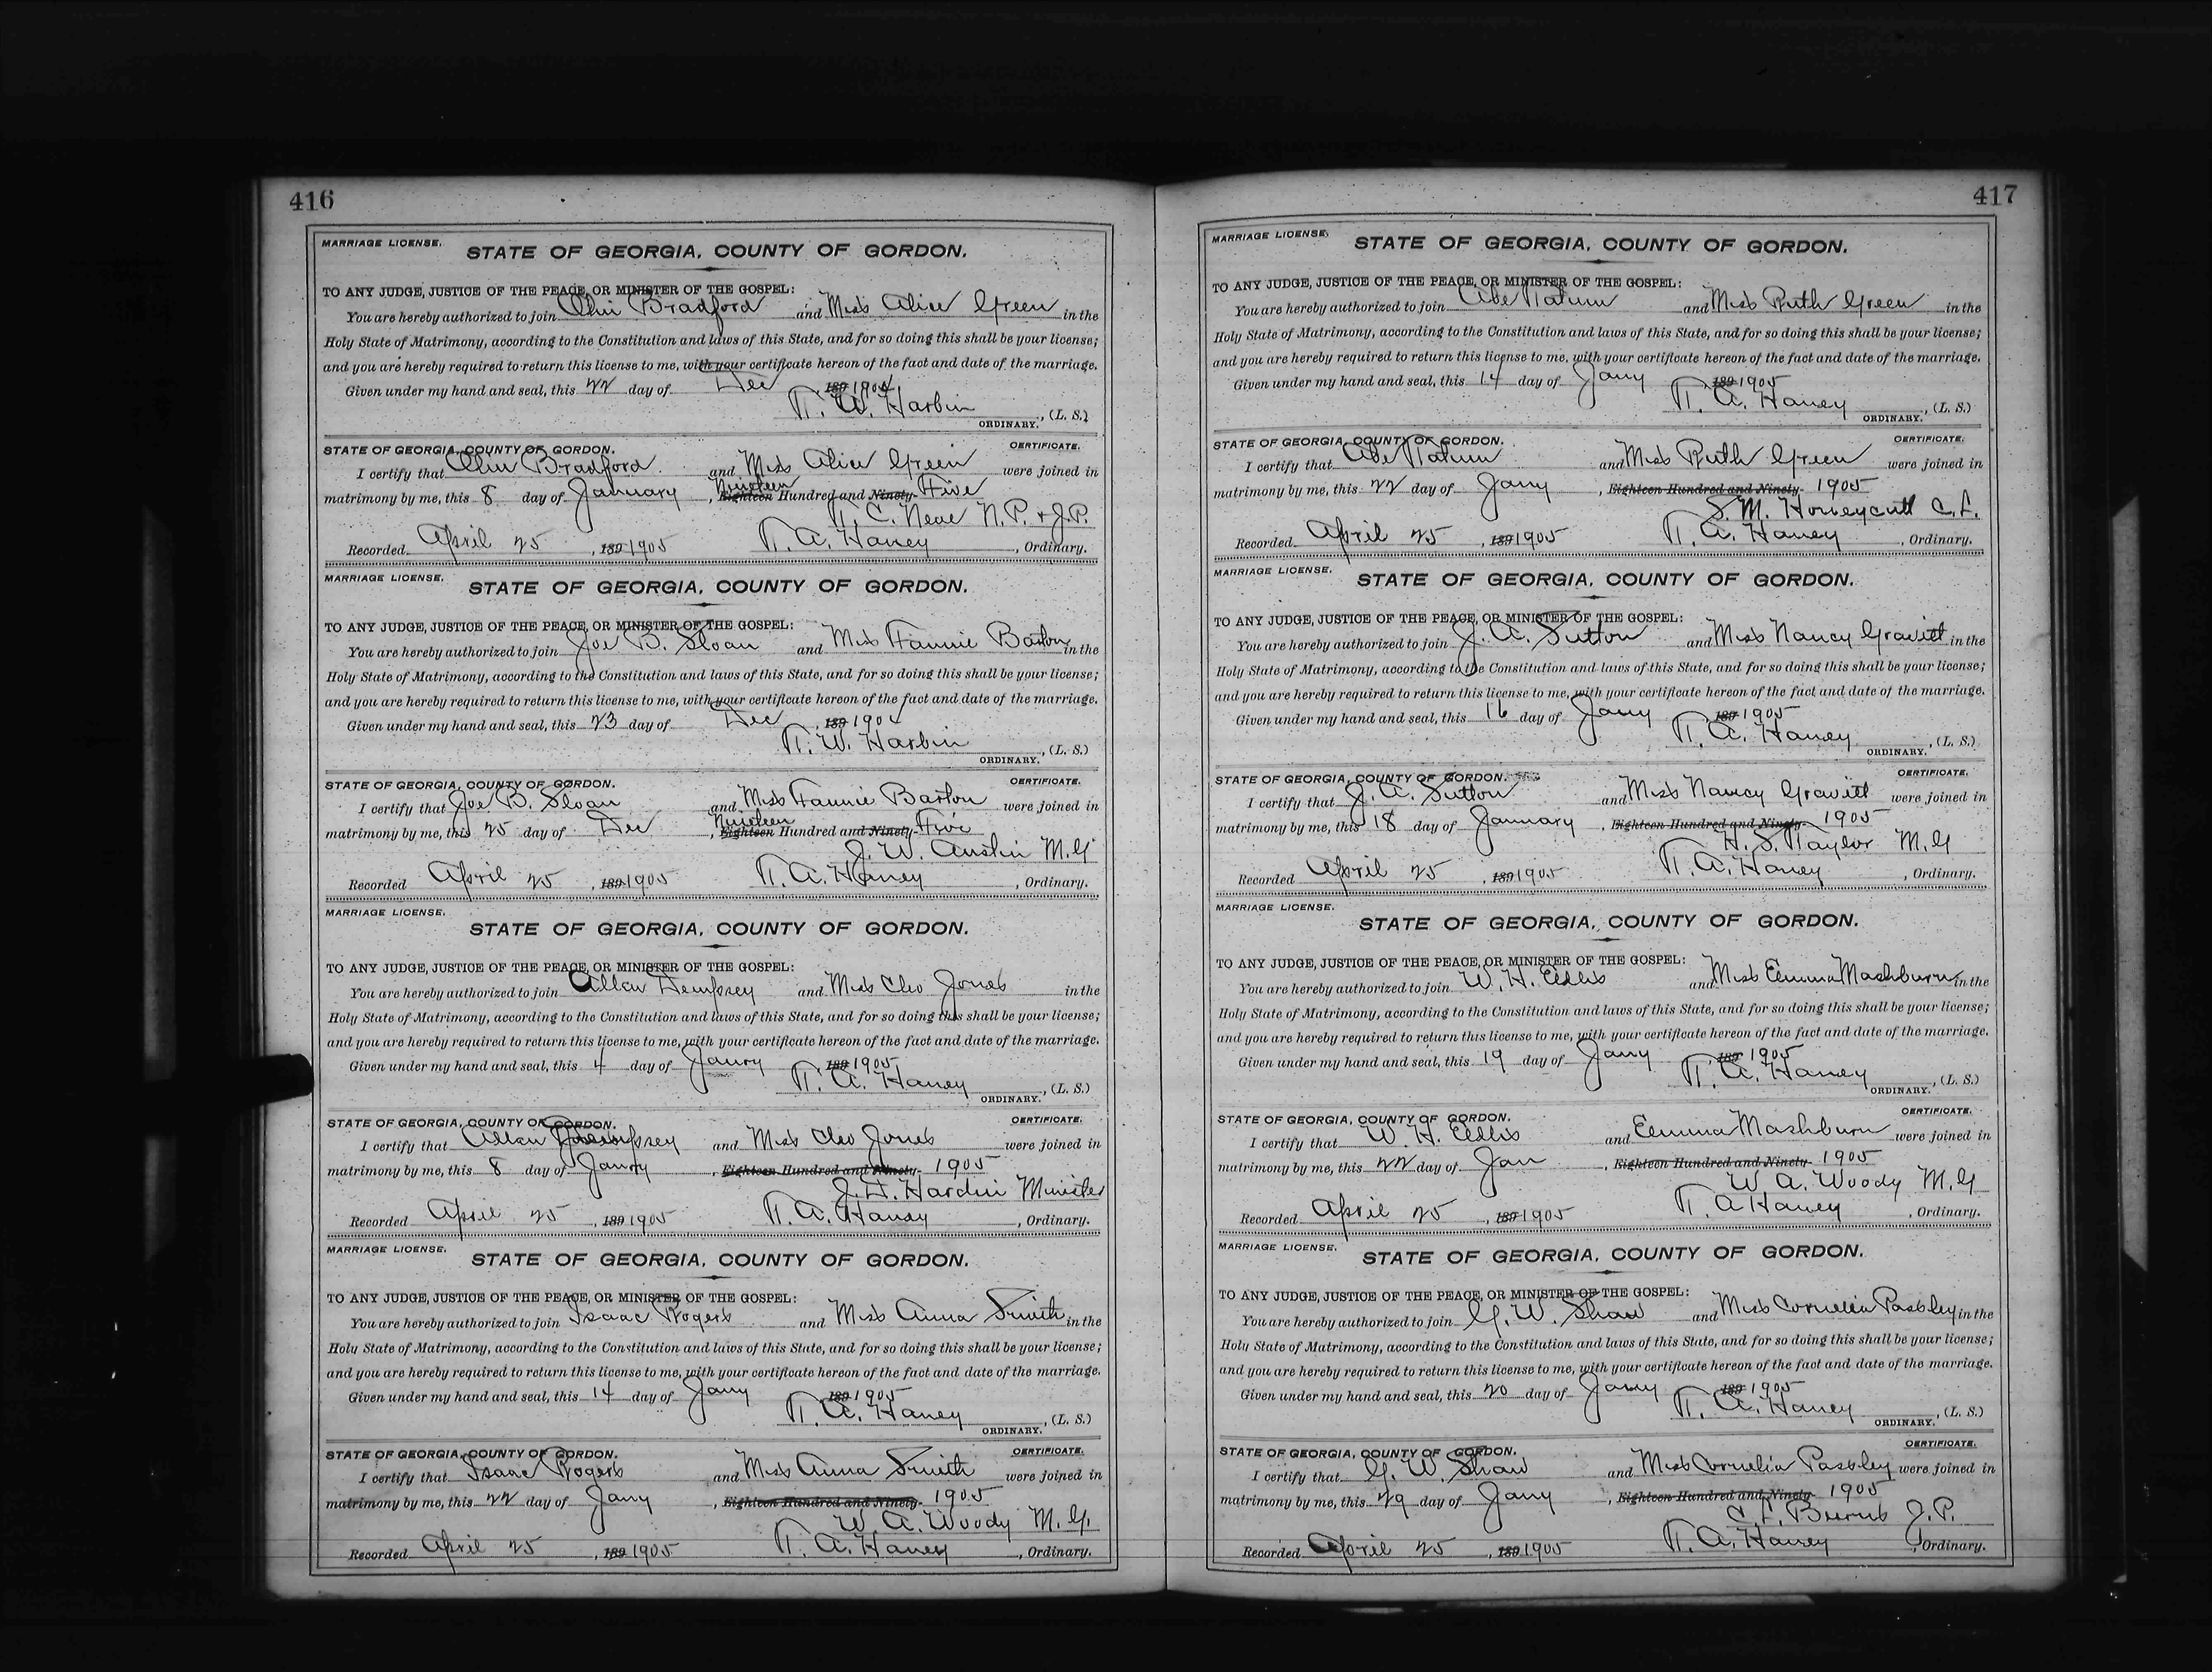 416
MARRIAGE LICENSE.
STATE OF GEORGIA, COUNTY OF GORDON.
TO ANY JUDGE, JUSTICE OF THE PEACE, OR MINISTER OF THE GOSPEL:
You are hereby authorized to join Olin Bradford and Miss Alice Green in the
Holy State of Matrimony, according to the Constitution and laws of this State, and for so doing this shall be your license;
and you are hereby required to return this license to me, with your certificate hereon of the fact and date of the marriage.
Given under my hand and seal, this 22 day of Dec 189 1904
T. W. Harbin, (L. S.)
ORDINARY.
STATE OF GEORGIA, COUNTY OF GORDON. CERTIFICATE.
I certify that Olin Bradford and Miss Alice Green were joined in
matrimony by me, this 8 day of January, Eighteen Nineteen Hundred and Ninety- Five
T. C. Neal N.P. & J.P.
Recorded April 25, 189 1905 T. A. Haney, Ordinary.
MARRIAGE LICENSE.
STATE OF GEORGIA, COUNTY OF GORDON.
TO ANY JUDGE, JUSTICE OF THE PEACE, OR MINISTER OF THE GOSPEL:
You are hereby authorized to join Joe B. Sloan and Miss Fannie Barton in the
Holy State of Matrimony, according to the Constitution and laws of this State, and for so doing this shall be your license;
and you are hereby required to return this license to me, with your certificate hereon of the fact and date of the marriage.
Given under my hand and seal, this 23 day of Dec, 189 1904
T. W. Harbin, (L. S.)
ORDINARY.
STATE OF GEORGIA, COUNTY OF GORDON. CERTIFICATE.
I certify that Joe B. Sloan and Miss Fannie Barton were joined in
matrimony by me, this 25 day of Dec, Eighteen Nineteen Hundred and Ninety- Five
J. W. Austin M.G
Recorded April 25, 189 1905 T. A. Haney, Ordinary.
MARRIAGE LICENSE.
STATE OF GEORGIA, COUNTY OF GORDON.
TO ANY JUDGE, JUSTICE OF THE PEACE, OR MINISTER OF THE GOSPEL:
You are hereby authorized to join Allan Dempsey and Miss Cleo Jones in the
Holy State of Matrimony, according to the Constitution and laws of this State, and for so doing this shall be your license;
and you are hereby required to return this license to me, with your certificate hereon of the fact and date of the marriage.
Given under my hand and seal, this 4 day of Janry, 189 1905
T. A. Haney, (L. S.)
ORDINARY.
STATE OF GEORGIA, COUNTY OF GORDON. CERTIFICATE.
I certify that Allan Dempsey and Miss Cleo Jones were joined in
matrimony by me, this 8 day of Janry, Eighteen Hundred and Ninety- 1905
J. H. Hardin Minister
Recorded April 25, 189 1905 T. A. Haney, Ordinary.
MARRIAGE LICENSE.
STATE OF GEORGIA, COUNTY OF GORDON.
TO ANY JUDGE, JUSTICE OF THE PEACE, OR MINISTER OF THE GOSPEL:
You are hereby authorized to join Isaac Rogers and Miss Anna Smith in the
Holy State of Matrimony, according to the Constitution and laws of this State, and for so doing this shall be your license;
and you are hereby required to return this license to me, with your certificate hereon of the fact and date of the marriage.
Given under my hand and seal, this 14 day of Jany 189 1905
T. A. Haney, (L. S.)
ORDINARY.
STATE OF GEORGIA, COUNTY OF GORDON. CERTIFICATE.
I certify that Isaac Rogers and Miss Anna Smith were joined in
matrimony by me, this 22 day of Jany, Eighteen Hundred and Ninety- 1905
W. A. Woody M. G.
Recorded April 25, 189 1905 T. A. Haney, Ordinary.
417
MARRIAGE LICENSE.
STATE OF GEORGIA, COUNTY OF GORDON.
TO ANY JUDGE, JUSTICE OF THE PEACE, OR MINISTER OF THE GOSPEL:
You are hereby authorized to join Abe Tatum and Miss Ruth Green in the
Holy State of Matrimony, according to the Constitution and laws of this State, and for so doing this shall be your license;
and you are hereby required to return this license to me, with your certificate hereon of the fact and date of the marriage.
Given under my hand and seal, this 14 day of Jany 189 1905
T. A. Haney, (L. S.)
ORDINARY.
STATE OF GEORGIA, COUNTY OF GORDON. CERTIFICATE.
I certify that Abe Tatum and Miss Ruth Green were joined in
matrimony by me, this 22 day of Jany, Eighteen Hundred and Ninety- 1905
S. M. Honeycutt C. L.
Recorded April 25, 189 1905 T. A. Haney, Ordinary.
MARRIAGE LICENSE.
STATE OF GEORGIA, COUNTY OF GORDON.
TO ANY JUDGE, JUSTICE OF THE PEACE, OR MINISTER OF THE GOSPEL:
You are hereby authorized to join J. A. Sutton and Miss Nancy Gravitt in the
Holy State of Matrimony, according to the Constitution and laws of this State, and for so doing this shall be your license;
and you are hereby required to return this license to me, with your certificate hereon of the fact and date of the marriage.
Given under my hand and seal, this 16 day of Jany 189 1905
T. A. Haney, (L. S.)
ORDINARY.
STATE OF GEORGIA, COUNTY OF GORDON. CERTIFICATE.
I certify that J. A. Sutton and Miss Nancy Gravitt were joined in
matrimony by me, this 18 day of January, Eighteen Hundred and Ninety- 1905
H. S. Taylor M. G
Recorded April 25, 189 1905 T. A. Haney, Ordinary.
MARRIAGE LICENSE.
STATE OF GEORGIA, COUNTY OF GORDON.
TO ANY JUDGE, JUSTICE OF THE PEACE, OR MINISTER OF THE GOSPEL:
You are hereby authorized to join W. H. Eddis and Miss Emma Mashburn in the
Holy State of Matrimony, according to the Constitution and laws of this State, and for so doing this shall be your license;
and you are hereby required to return this license to me, with your certificate hereon of the fact and date of the marriage.
Given under my hand and seal, this 19 day of Jany, 189 1905
T. A. Haney, (L. S.)
ORDINARY.
STATE OF GEORGIA, COUNTY OF GORDON. CERTIFICATE.
I certify that W. H. Eddis and Emma Mashburn were joined in
matrimony by me, this 22 day of Jan, Eighteen Hundred and Ninety- 1905
W A. Woody M. G
Recorded April 25, 189 1905 T. A Haney, Ordinary.
MARRIAGE LICENSE.
STATE OF GEORGIA, COUNTY OF GORDON.
TO ANY JUDGE, JUSTICE OF THE PEACE, OR MINISTER OF THE GOSPEL:
You are hereby authorized to join G. W. Shaw and Miss Cornelia Passley in the
Holy State of Matrimony, according to the Constitution and laws of this State, and for so doing this shall be your license;
and you are hereby required to return this license to me, with your certificate hereon of the fact and date of the marriage.
Given under my hand and seal, this 20 day of Jany 189 1905
T. A. Haney, (L. S.)
ORDINARY.
STATE OF GEORGIA, COUNTY OF GORDON. CERTIFICATE.
I certify that G. W. Shaw and Miss Cornelia Passley were joined in
matrimony by me, this 29 day of Jany, Eighteen Hundred and Ninety- 1905
C. L. Burns J. P.
Recorded April 25, 189 1905 T. A. Haney, Ordinary.